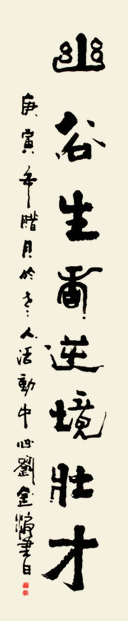 幽谷生香逆境壮才
庚寅年腊月於老人活動中心劉金